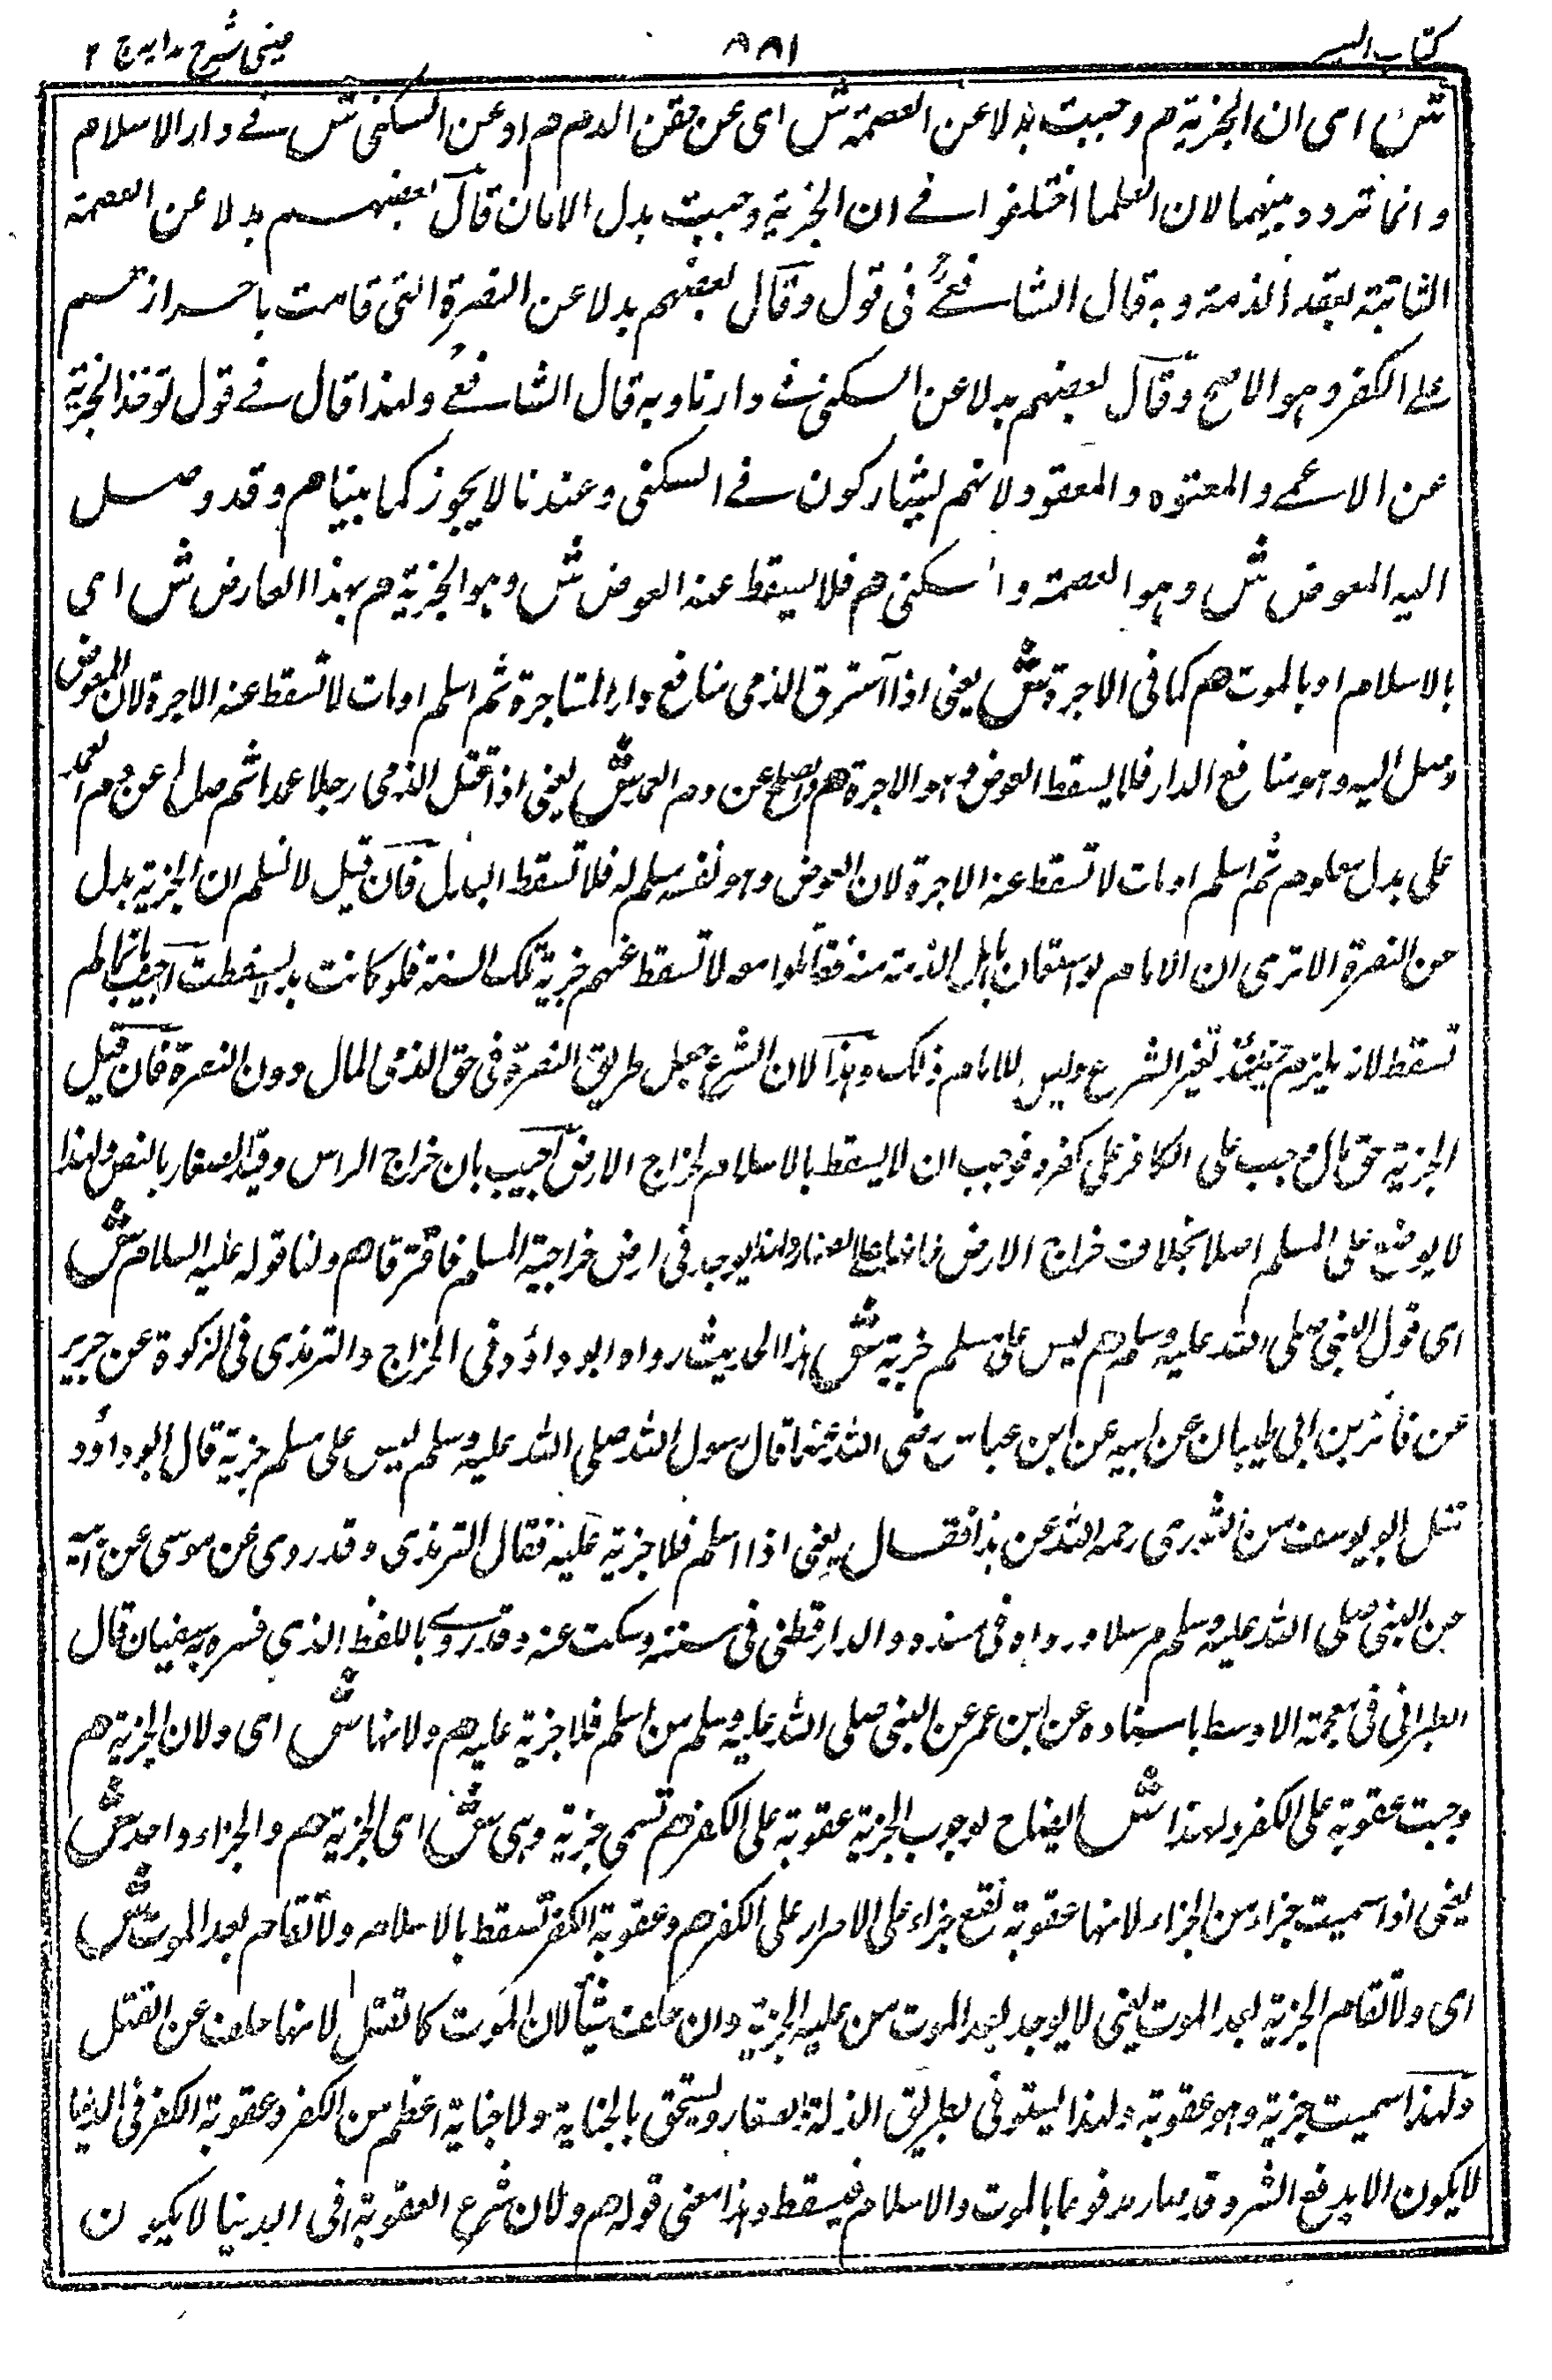 كتاب السير ٨٨١ عینی شرح هدایه ج ٢
ش اى ان الجزية م وجبت بدلا عن العصمة ش اى عن حقن الدم م او عن السكنى ش فے دار الاسلام
وانما تردد بينهما لان العلما اختلفوا فے ان الجزية وجبت بدل الامان قال بعضهم بدلا عن العصمة
الثابتة بعقد الذمة وبه قال الشافعے فى قول وقال بعضهم بدلا عن النصرة التى قامت باحرازهم
علے الكفر وهو الاصح وقال بعضهم بدلا عن السكنى فے دارنا وبه قال الشافعے ولهذا قال فے قول توخذ الجزية
عن الاعمے والمعتوه والمعقود لانهم يشاركون فے السكنى وعندنا لا يجوز كما بينا هم وقد وصل
اليه المعوض ش وهو العصمة والسكنى هم فلا يسقط عنه العوض ش وهو الجزية هم بهذا العارض ش اى
بالاسلام او بالموت هم كما فى الاجرة ش يعنى اذا استرق الذمى منافع دار المستاجرة ثم اسلم او مات لا تسقط عنه الاجرة لان المعوض
وصل اليه وهو منافع الدار فلا يسقط العوض وهو الاجرة هم والصلح عن دم العمد ش يعنى اذا قتل الذمى رجلا عمدا ثم صالح عن دم العمد
على بدل معلوم ثم اسلم او مات لا تسقط عنه الاجرة لان العوض وهو نفسه سلم له فلا تسقط البدل فان قيل لا نسلم ان الجزية بدل
عن النصرة الا ترى ان الامام لو استعان باهل الذمة سنة فقاتلوا معه لا تسقط عنهم جزية تلك السنة فلو كانت بدلا لسقطت اجيب بانها لم
تسقط لانه يلزم حينئذ تغير الشرع وليس للامام ذلك وهذا لان الشرع جعل طريق النصرة فى حق الذمى المال دون النصرة فان قيل
الجزية حق مال وجب على الكافر على كفره فوجب ان لا يسقط بالاسلام كخراج الارض اجيب بان خراج الراس وقيد الصغار بالنص ولهذا
لا يوضع على المسلم اصلا بخلاف خراج الارض ولهذا يوجد فى ارض خراجية المسلم فافترقا هم ولنا قوله عليه السلام ش
اى قول النبى صلى الله عليه وسلم هم ليس على مسلم جزية ش هذا الحديث رواه ابو داؤد فى الخراج والترمذى فى الزكوة عن جرير
عن قابوس بن ابى ظبيان عن ابيه عن ابن عباس رضى الله عنهما قال رسول الله صلى الله عليه وسلم ليس على مسلم جزية قال ابو داؤد
سئل ابو يوسف من الثورى رحمه الله عن هذا فقال يعنى اذا اسلم فلا جزية عليه فقال الترمذى وقد روى عن موسى عن ابيه
عن النبى صلى الله عليه وسلم مرسلا ورواه فى مسنده والدارقطنى فى سننه وسكت عنه وقد روے باللفظ الذى فسره به سفيان قال
الطبرانى فى معجمه الاوسط باسناده عن ابن عمر عن النبى صلى الله عليه وسلم من اسلم فلا جزية عليه هم ولانها ش اى ولان الجزية هم
وجبت عقوبة على الكفر ولهذا ش ايضاح لوجوب الجزية عقوبة على الكفر هم تسمى جزية وهى ش اى الجزية هم والجزاء واحد ش
يعنى اذا سميت جزاء من الجزاء لانها عقوبة تقع جزاء على الاصرار على الكفر هم وعقوبة الكفر تسقط بالاسلام ولا تقام بعد الموت ش
اى ولا تقام الجزية بعد الموت يعنى لا يوجد بعد الموت من عليه الجزية وان خلف شيئا لان الموت كالقتل لانها خلف عن القتل
ولهذا سميت جزية وهو عقوبة ولهذا يستوفى بطريق الذلة والصغار ويستحق بالجناية ولا جناية اعظم من الكفر وعقوبة الكفر فى الدنيا
لا يكون الا بدفع الشر وقد صار مدفوعا بالموت والاسلام فيسقط وهذا معنى قوله هم ولان شرع العقوبة فى الدنيا لا يكون